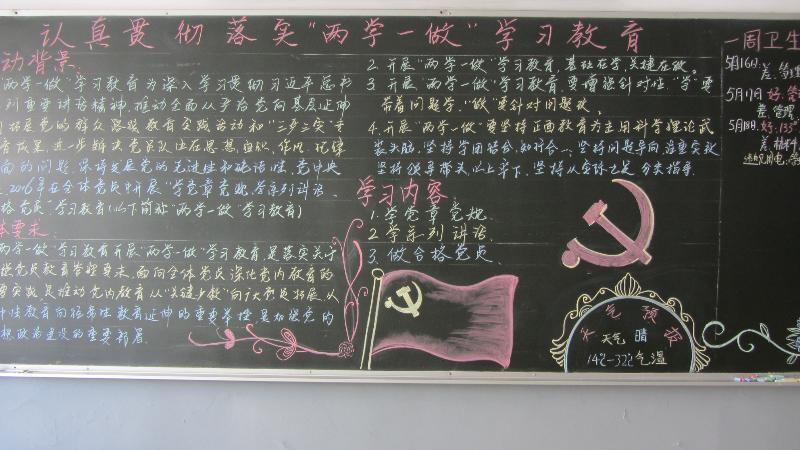 认真贯彻落实“两学一做”学习教育
动背景:
两学一做”学习教育为深入学习贯彻习近平总书
列重要讲话精神，推动全面从严治党向基层延伸
拓展党的群众路线教育实践活动和“三严三实”
育成果，进一步解决党员队伍在思想、组织、作风、纪律
面的问题，保持发展党的先进性和纯洁性，党中央
2016年在全体党员中开展“学党章党规、学系列讲话、
格党员”学习教育(以下简称“两学一做”学习教育)
体要求:
两学一做”学习教育开展“两学一做”学习教育，是落实关于
党员教育管理要求、面向全体党员深化党内教育的
要实践，是推动党内教育从“关键少数”向广大党员拓展、从
性教育向经常性教育延伸的重要举措，是加强党的
想政治建设的重要部署.
2. 开展“两学一做”学习教育，基础在学，关键在做。
3. 开展“两学一做”学习教育，要增强针对性，“学”要
带着问题学，“做”要针对问题改。
4. 开展“两学一做”要坚持正面教育为主，用科学理论武
装头脑，坚持学用结合，知行合一，坚持问题导向，注重实效
坚持领导带头，以上率下，坚持从实际出发，分类指导.
学习内容
1. 学党章党规.
2. 学系列讲话.
3. 做合格党员.
天气预报
天气 晴
14℃-32℃气温
一周卫生
5月16日:
差:
5月17日 好:
差:管理
5月18日 好:135
差: